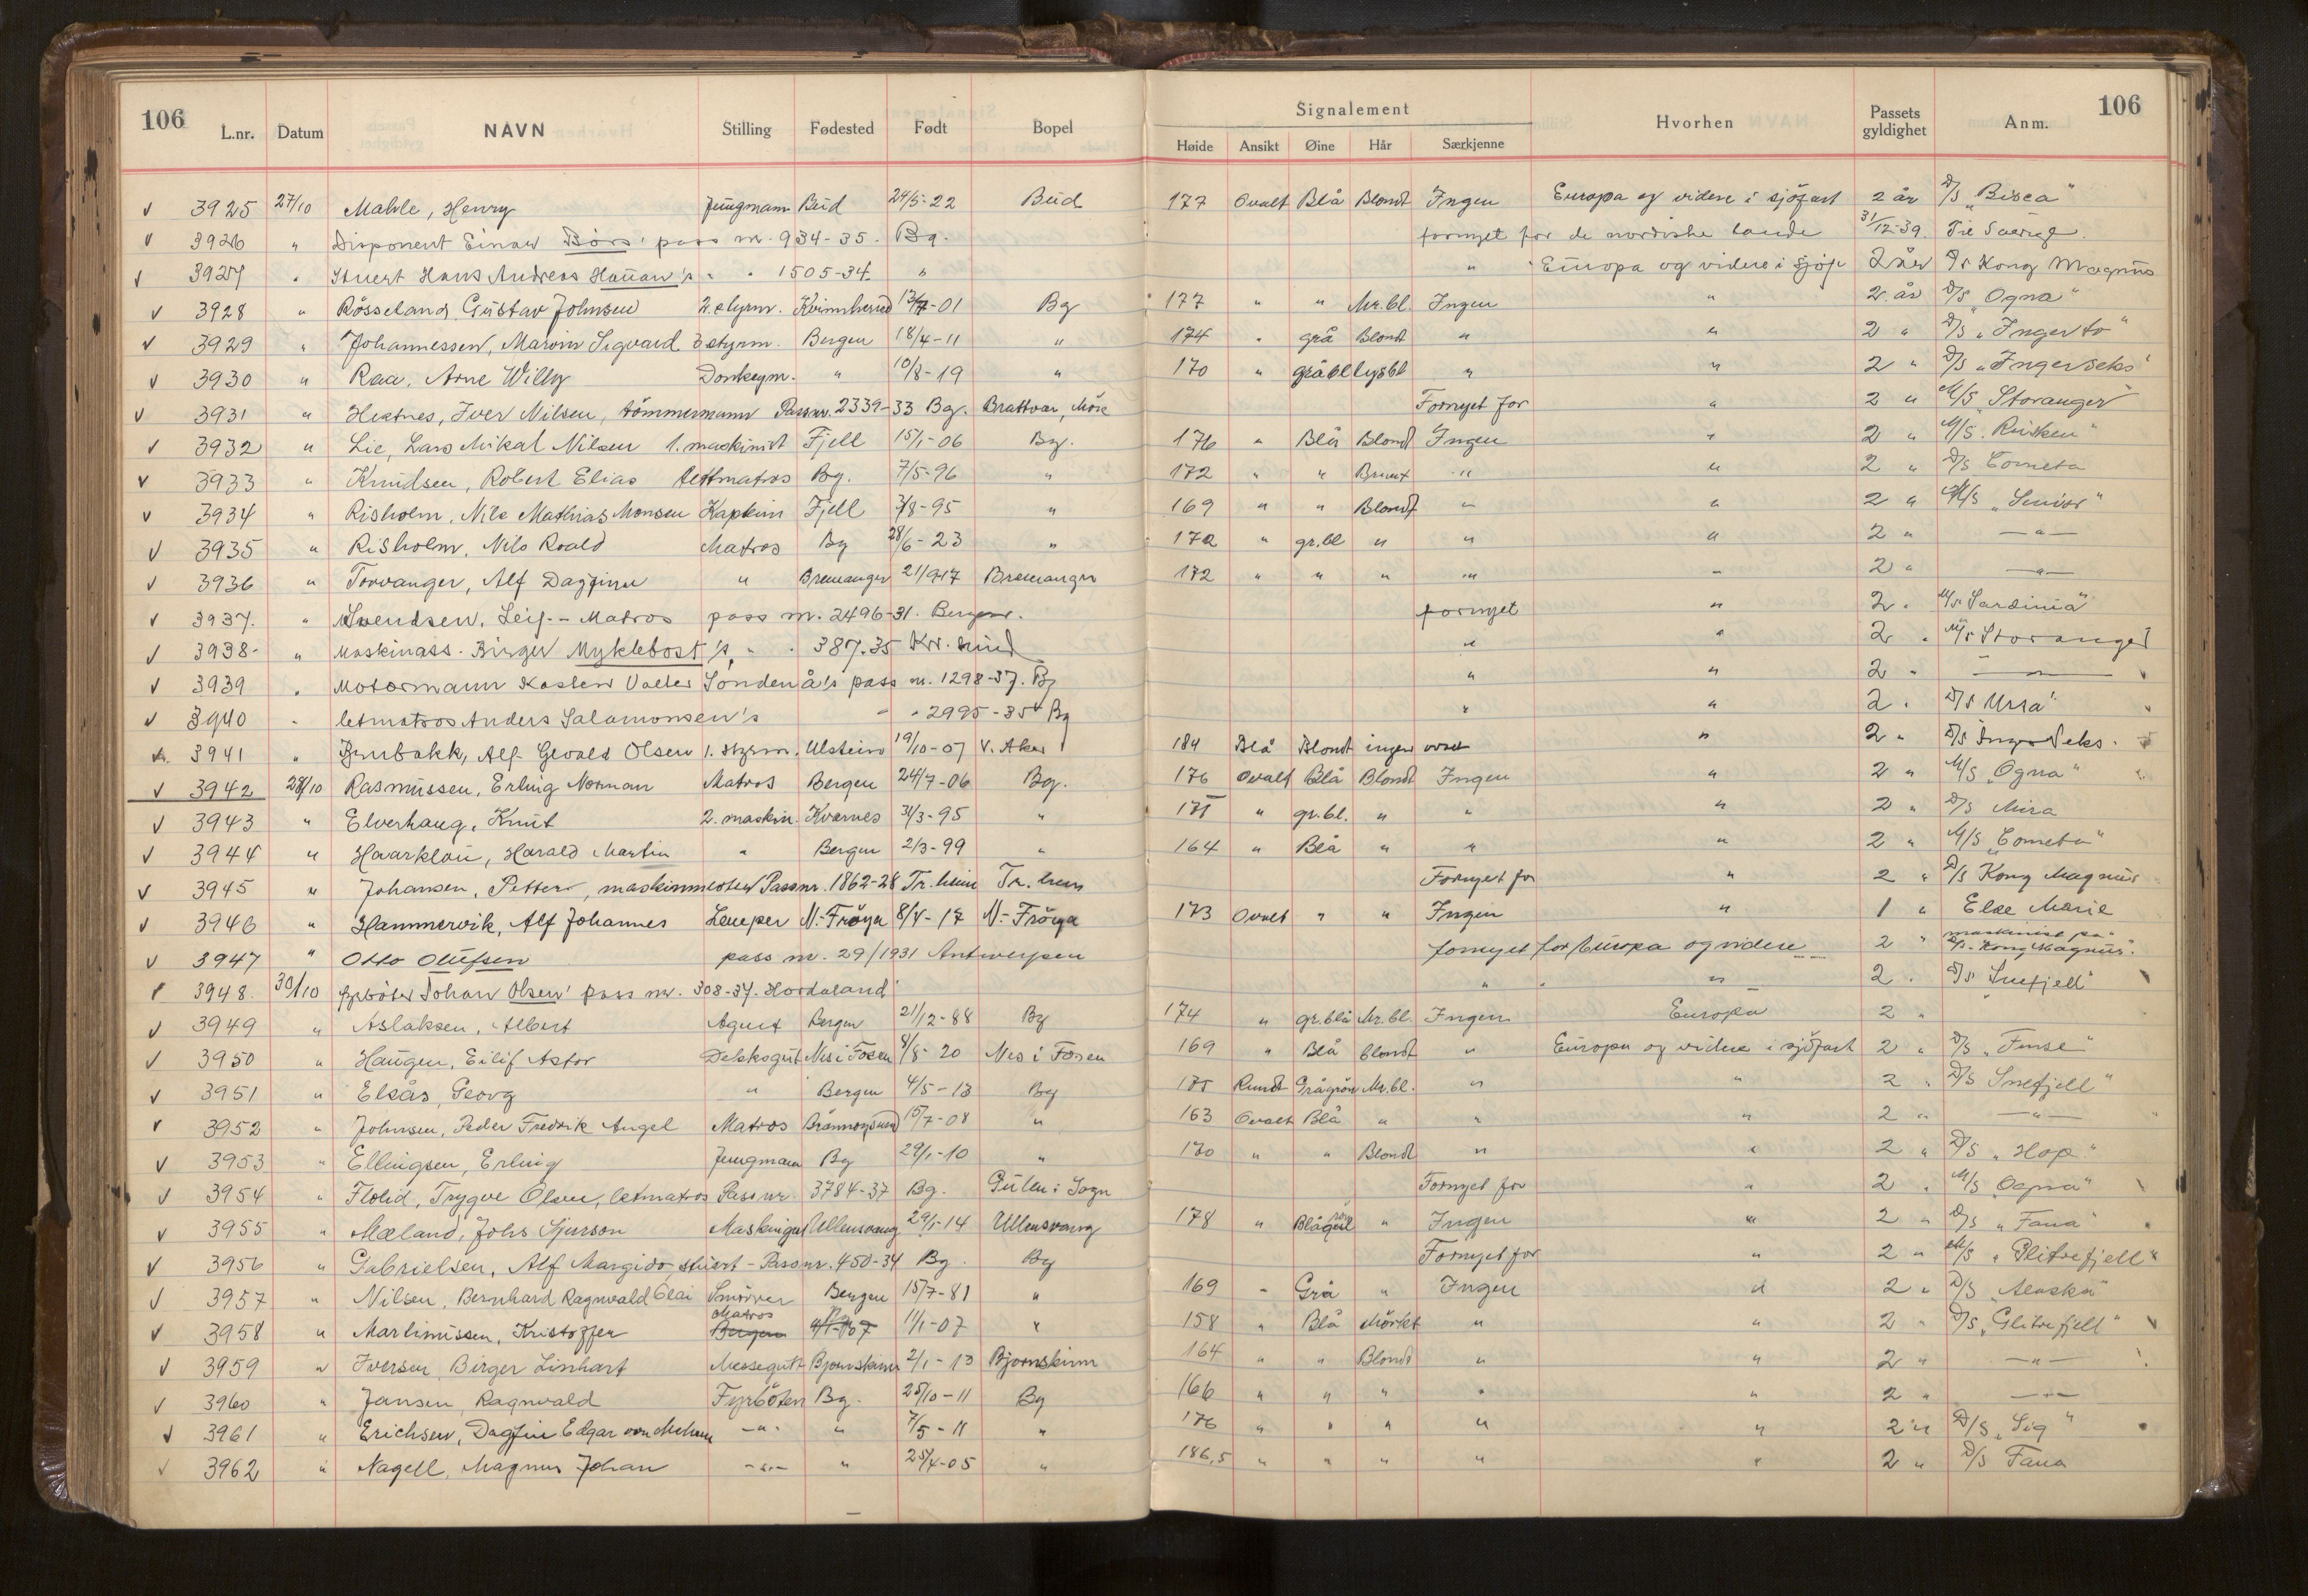 106 106
Signalement
L.nr. Datum NAVN Stilling Fødested Født Bopel Høide Ansikt Øine Hår Særkjenne Hvorhen Passets gyldighet Anm.
✓ 3925 27/10 Mahle, Henry Jungmann Bud 24/5-22 Bud 177 Ovalt Blå Blondt Ingen Europa og videre i sjöfart 2 år D/S „Bisca"
✓ 3926 " Disponent Einar Börs' pass nr. 934-35. Bg. fornyet for de nordiske lande 31/12-39. Til Sverig.
✓ 3927 " Stuert Hans Andreas Hauan's " " 1505-34. " " Europa og videre i sjöf 2 år D/s Kong Magnus
✓ 3928 " Rösseland, Gustav Johnsen 2. styrm. Kvinnherred 12/7-01 Bg 177 " " Mr.bl. Ingen " 2 år D/S „Ogna"
✓ 3929 " Johannessen, Marvin Sigvard 3 styrm. Bergen 18/4-11 " 174 " grå Blondt " " 2 " D/S „Inger to"
✓ 3930 " Raa, Arne Willy Donkeym. " 10/8-19 " 170 " gråbl lysbl " " 2 " D/S „Ingerseks"
✓ 3931 " Hestnes, Iver Nilsen, tömmermann Passnr. 2339-33 Bg. Brattvær, Möre Fornyet for " 2 " M/S „Storanger"
✓ 3932 " Lie, Lars Mikal Nilsen 1. maskinist Fjell 15/1-06 Bg. 176 " Blå Blondt Ingen " 2 " M/S.
✓ 3933 " Knudsen, Robert Elias lettmatros Bg. 7/5-96 " 172 " " Brunt " " 2 " D/S Cometa
✓ 3934 " Risholm, Nils Mathias Monsen Kaptein Fjell 3/8-95 " 169 " " Blondt " " 2 " M/S
✓ 3935 " Risholm, Nils Roald Matros Bg 28/6-23 " 172 " gr.bl " " " 2 " —"—
✓ 3936 " Torvanger, Alf Dagfinn " Bremanger 21/9-17 Bremanger 172 " " " " " 2 " —"—
✓ 3937. " Svendsen, Leif. - Matros pass nr. 2496-31. Bergen. fornyet " 2 " M/s Sardinia"
✓ 3938- " Maskinass. Birger Myklebost's " " 387.35 Kr. sund " " 2 " M/s Storanger
✓ 3939 " Motormann Karsten Valter Söndenå's pass nr. 1298-37. Bg " " 2 " —"—
✓ 3940 " letmatros Anders Salomonsen's " " 2995-35 Bg " " 2 " D/S Ursa'
3941 " Alf Gevald Olsen 1. styrm. Ulstein 19/10-07 V. Aker 184 Blå Blondt ingen " 2 " D/S Inger Seks.
✓ 3942 28/10 Rasmussen, Erling Norman Matros Bergen 24/7-06 Bg. 176 Ovalt Blå Blondt Ingen " 2 " M/S „Ogna"
✓ 3943 " Elverhaug, Knut 2. maskin. Kvernes 31/3-95 " 175 " gr.bl. " " " 2 " D/S Mira
✓ 3944 " Haarklou, Harald Martin " Bergen 2/3-99 " 164 " Blå " " " 2 " M/S „Cometa"
✓ 3945 " Johansen, Petter, maskinmester Passnr. 1862-28 Tr.heim Tr.heim Fornyet for " 2 " D/S Kong Magnus
✓ 3946 " Hammervik, Alf Johannes Lemper N.-Fröya 8/4-17 N.-Fröya 173 Ovalt " " Ingen " 1 " Else Marie
✓ 3947 " Otto Olufsen pass nr. 29/1931 Antwerpen fornyet for Europa og videre 2 " maskinist på D/s. Kong Magnus".
✓ 3948. 30/10 fyrböter Johan Olsen' pass nr. 308-37. Hordaland " " " 2 . D/s Snefjell"
✓ 3949 " Aslaksen, Albert Agent Bergen 21/12-88 Bg 174 " gr.blå Mr.bl. Ingen Europa 2 "
✓ 3950 " Haugen, Eilif Astor Dekksgut Nes i Fosen 8/8-20 Nes i Fosen 169 " Blå blondt " Europa og videre i sjöfart 2 " D/S „Finse"
✓ 3951 " Elsås, Georg " Bergen 4/5-13 Bg 175 Rundt Grågrön Mr.bl. " " 2 " D/S Snefjell"
✓ 3952 " Johnsen, Peder Fredrik Angel Matros Brönnöysund 15/7-08 " 163 Ovalt Blå " " " 2 " —"—
✓ 3953 " Ellingsen, Erling Jungmann Bg 29/1-10 " 170 " " Blondt " " 2 " D/S „Hop"
✓ 3954 " Flolid, Trygve Olsen, letmatros Passnr. 3784-37 Bg. Gulen i Sogn Fornyet for " 2 " M/S „Ogna"
✓ 3955 " Mæland, Johs Sjurson Maskingut Ullensvang 29/1-14 Ullensvang 178 " " Ingen " 2 " D/s „Fana"
✓ 3956 " Gabrielsen, Alf Margido, stuert - Passnr. 450-34 Bg. Bg Fornyet for " 2 " M/S „Glitrefjell"
✓ 3957 " Nilsen, Bernhard Ragnvald Olai Smörer Bergen 15/7-81 " 169 " Grå " Ingen " 2 " D/S „Alaska"
✓ 3958 " Martinussen, Kristoffer Matros Bergen 11/1-07 " 158 " Blå Mörkt " " 2 " D/S „Glitrefjell"
✓ 3959 " Iversen, Birger Linhart Messegutt Bjornskinn 2/1-13 Bjornskinn 164 " " Blondt " " 2 " —"—
✓ 3960 " Jansen, Ragnvald Fyrböter Bg. 25/10-11 Bg 166 " " " " " 2 " —"—
✓ 3961 " Erichsen, Dagfin Edgar von —"— " 7/5-11 " 176 " " " " " 2 " D/S „Sig"
✓ 3962 " Nagell, Magnus Johan —"— " 25/4-05 " 186,5 " " " " " 2 " D/S Fana